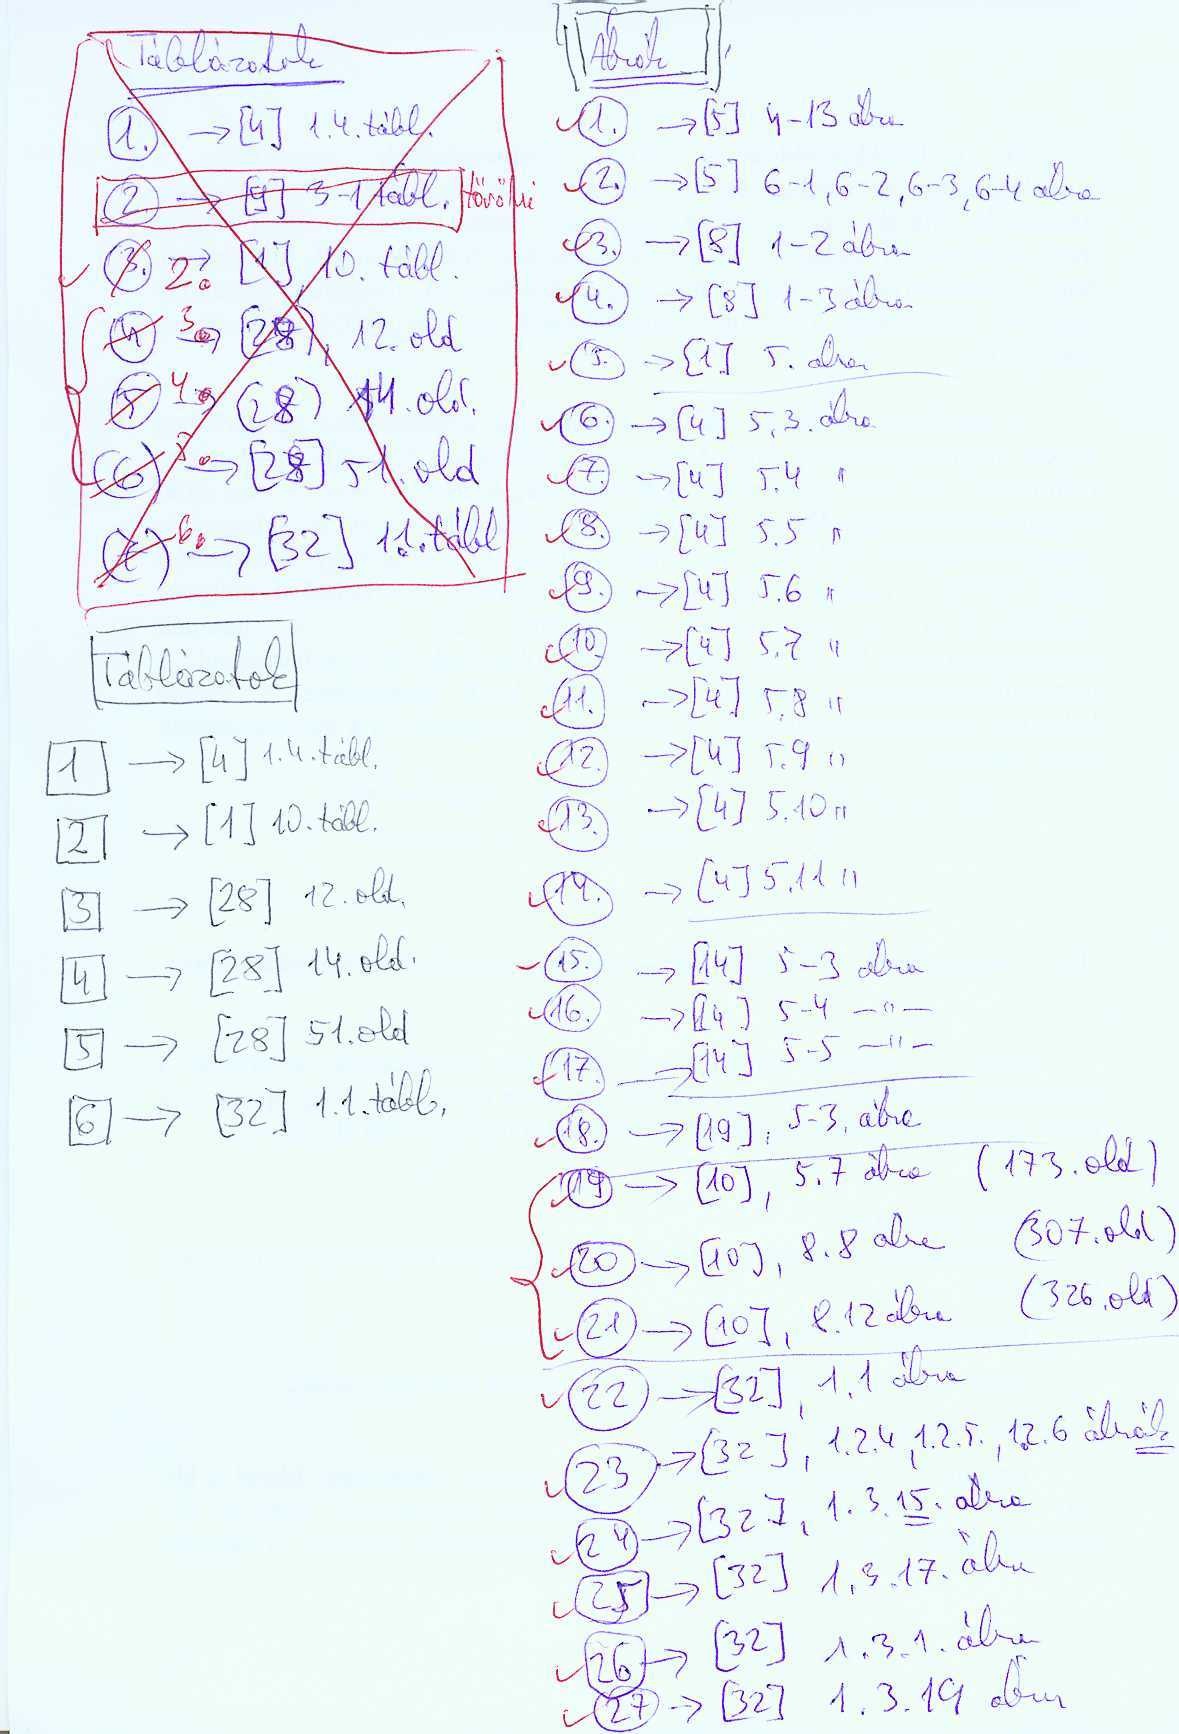 Táblázatok
1. → [4] 1.4. tábl.
2 → [4] 3-1 tábl. törölni
3. 2. → [1], 10. tábl.
4 3. → [28], 12. old
5 4. → (28) 14. old.
(6) 5. → [28] 51. old
(7) 6. → [32] 1.1. tábl
Táblázatok
1 → [4] 1.4. tábl.
2 → [1] 10. tábl.
3 → [28] 12. old.
4 → [28] 14. old.
5 → [28] 51. old
6 → [32] 1.1. tábl.
Ábrák
1. → [5] 4-13 ábra
2. → [5] 6-1, 6-2, 6-3, 6-4 ábra
3. → [8] 1-2 ábra
4. → [8] 1-3 ábra
5. → [1] 5. ábra
6. → [4] 5.3. ábra
7. → [4] 5.4 "
8. → [4] 5.5 "
9. → [4] 5.6 "
10. → [4] 5.7 "
11. → [4] 5.8 "
12. → [4] 5.9 "
13. → [4] 5.10 "
14. → [4] 5.11 "
15. → [14] 5-3 ábra
16. → [14] 5-4 —"—
17. → [14] 5-5 —"—
18. → [19], 5-3. ábra
19 → [10], 5.7 ábra (173. old)
20 → [10], 8.8 ábra (307. old)
21 → [10], 8.12 ábra (326. old)
22 → [32], 1.1 ábra
23 → [32], 1.2.4, 1.2.5., 1.2.6 ábrák
24 → [32], 1.3.15. ábra
25 → [32] 1.3.17. ábra
26 → [32] 1.3.1. ábra
27 → [32] 1.3.19 ábra